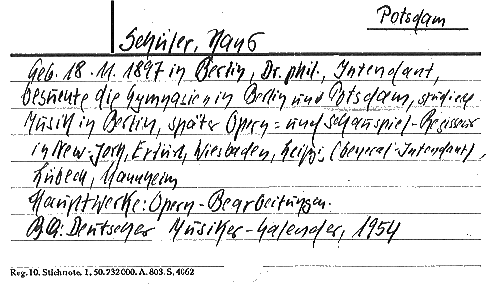 Potsdam
Schüler, Hans
Geb. 18. 11. 1897 in Berlin, Dr. phil., Intendant,
besuchte die Gymnasien in Berlin und Potsdam, studierte
Musik in Berlin, später Opern- und Schauspiel-Regisseur
in New-York, Erfurt, Wiesbaden, Leipzig (General-Intendant),
Lübeck, Mannheim
Hauptwerke: Opern-Bearbeitungen.
BQ: Deutscher Musiker-Kalender, 1954
Reg. 10. Stichnote. 1. 50. 732000. A. 803. S. 4062